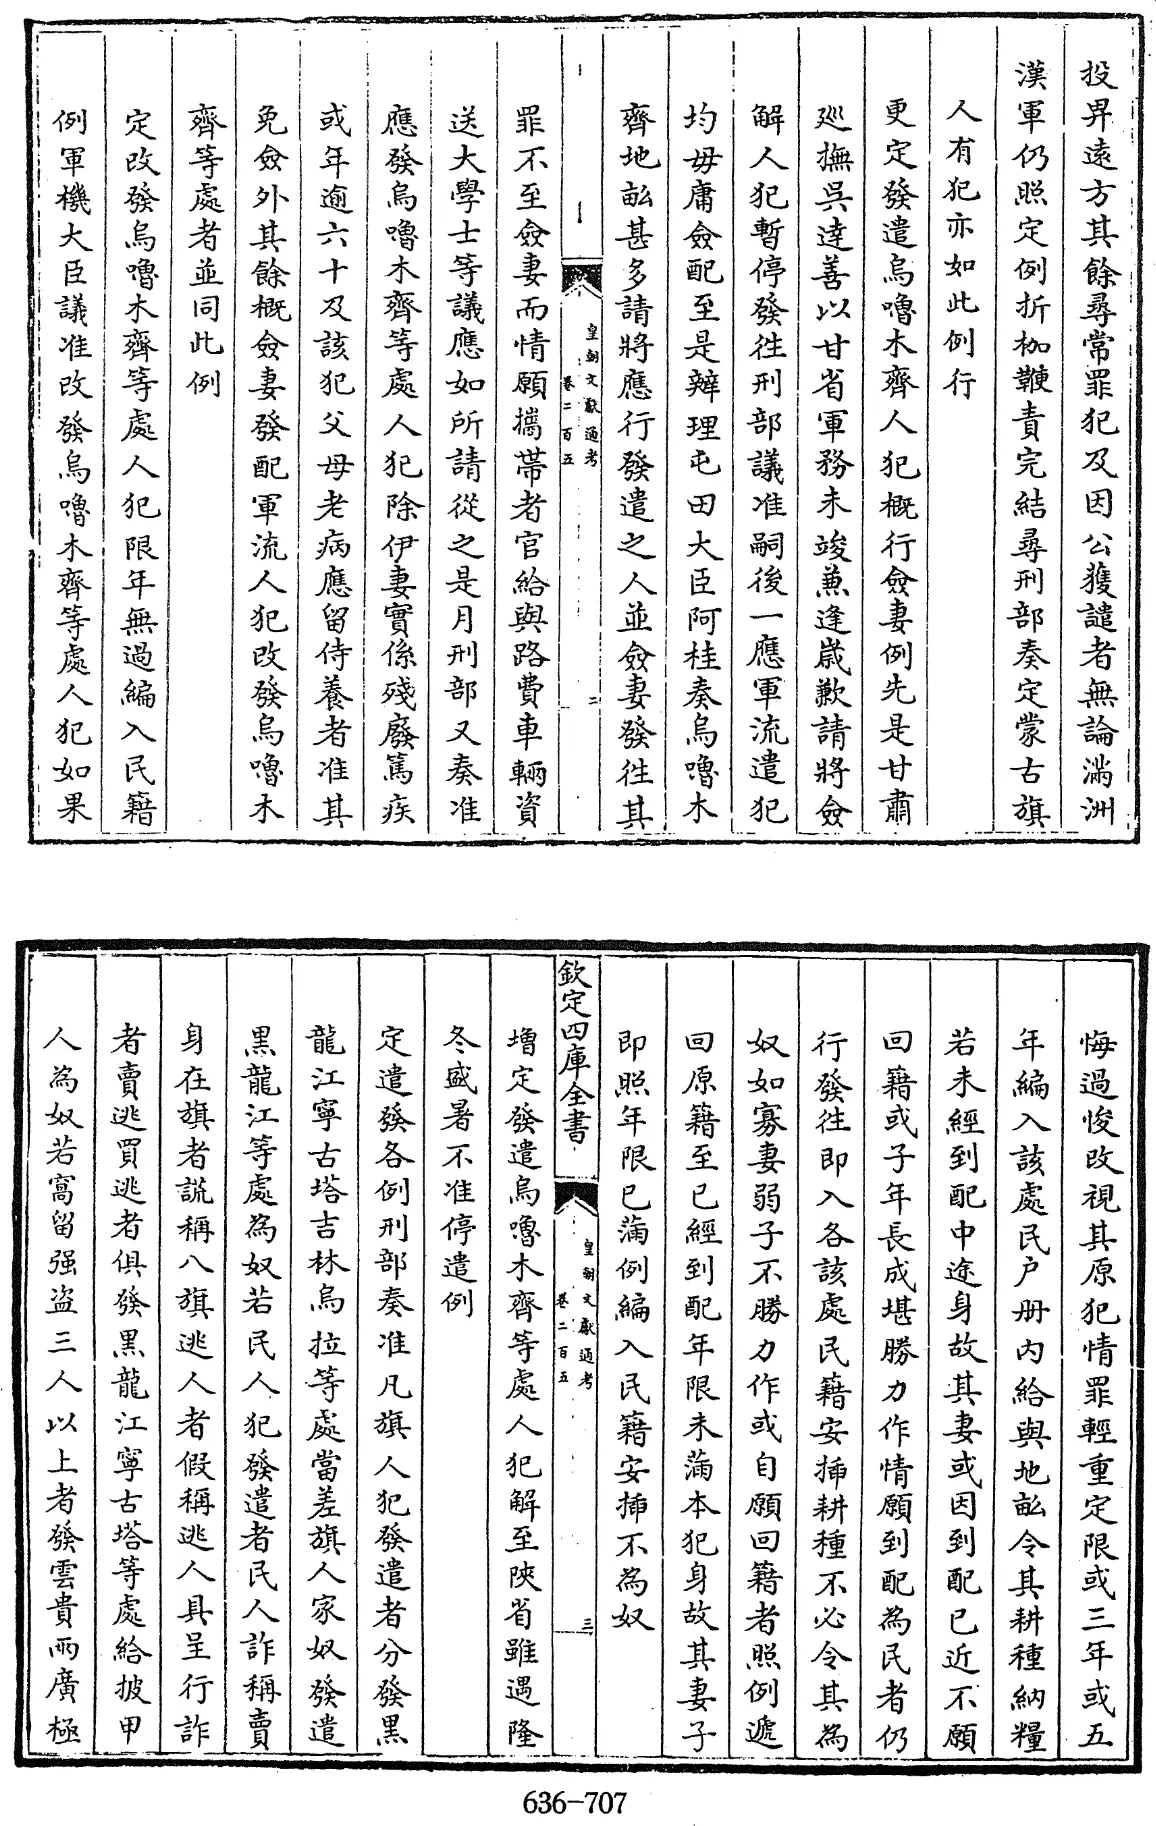 投畀遠方其餘尋常罪犯及因公獲譴者無論滿洲
漢軍仍照定例折枷鞭責完結尋刑部奏定蒙古旗
人有犯亦如此例行
更定發遣烏嚕木齊人犯概行僉妻例先是甘肅
廵撫吳達善以甘省軍務未竣兼逢嵗歉請將僉
解人犯暫停發徃刑部議准嗣後一應軍流遣犯
均毋庸僉配至是辦理屯田大臣阿桂奏烏嚕木
齊地畝甚多請將應行發遣之人並僉妻發徃其
皇朝文獻通考
卷二百五
二
罪不至僉妻而情願攜帶者官給與路費車輛資
送大學士等議應如所請從之是月刑部又奏准
應發烏嚕木齊等處人犯除伊妻實係殘廢篤疾
或年逾六十及該犯父母老病應留侍養者准其
免僉外其餘概僉妻發配軍流人犯改發烏嚕木
齊等處者並同此例
定改發烏嚕木齊等處人犯限年無過編入民籍
例軍機大臣議准改發烏嚕木齊等處人犯如果
悔過悛改視其原犯情罪輕重定限或三年或五
年編入該處民户册内給與地畝令其耕種納糧
若未經到配中途身故其妻或因到配已近不願
回籍或子年長成堪勝力作情願到配為民者仍
行發徃即入各該處民籍安插耕種不必令其為
奴如寡妻弱子不勝力作或自願回籍者照例遞
回原籍至已經到配年限未滿本犯身故其妻子
即照年限已滿例編入民籍安插不為奴
欽定四庫全書
皇朝文獻通考
卷二百五
三
增定發遣烏嚕木齊等處人犯解至陝省雖遇隆
冬盛暑不准停遣例
定遣發各例刑部奏准凡旗人犯發遣者分發黑
龍江寧古塔吉林烏拉等處當差旗人家奴發遣
黑龍江等處為奴若民人犯發遣者民人詐稱賣
身在旗者謊稱八旗逃人者假稱逃人具呈行詐
者賣逃買逃者俱發黑龍江寧古塔等處給披甲
人為奴若窩留强盜三人以上者發雲貴兩廣極
636-707